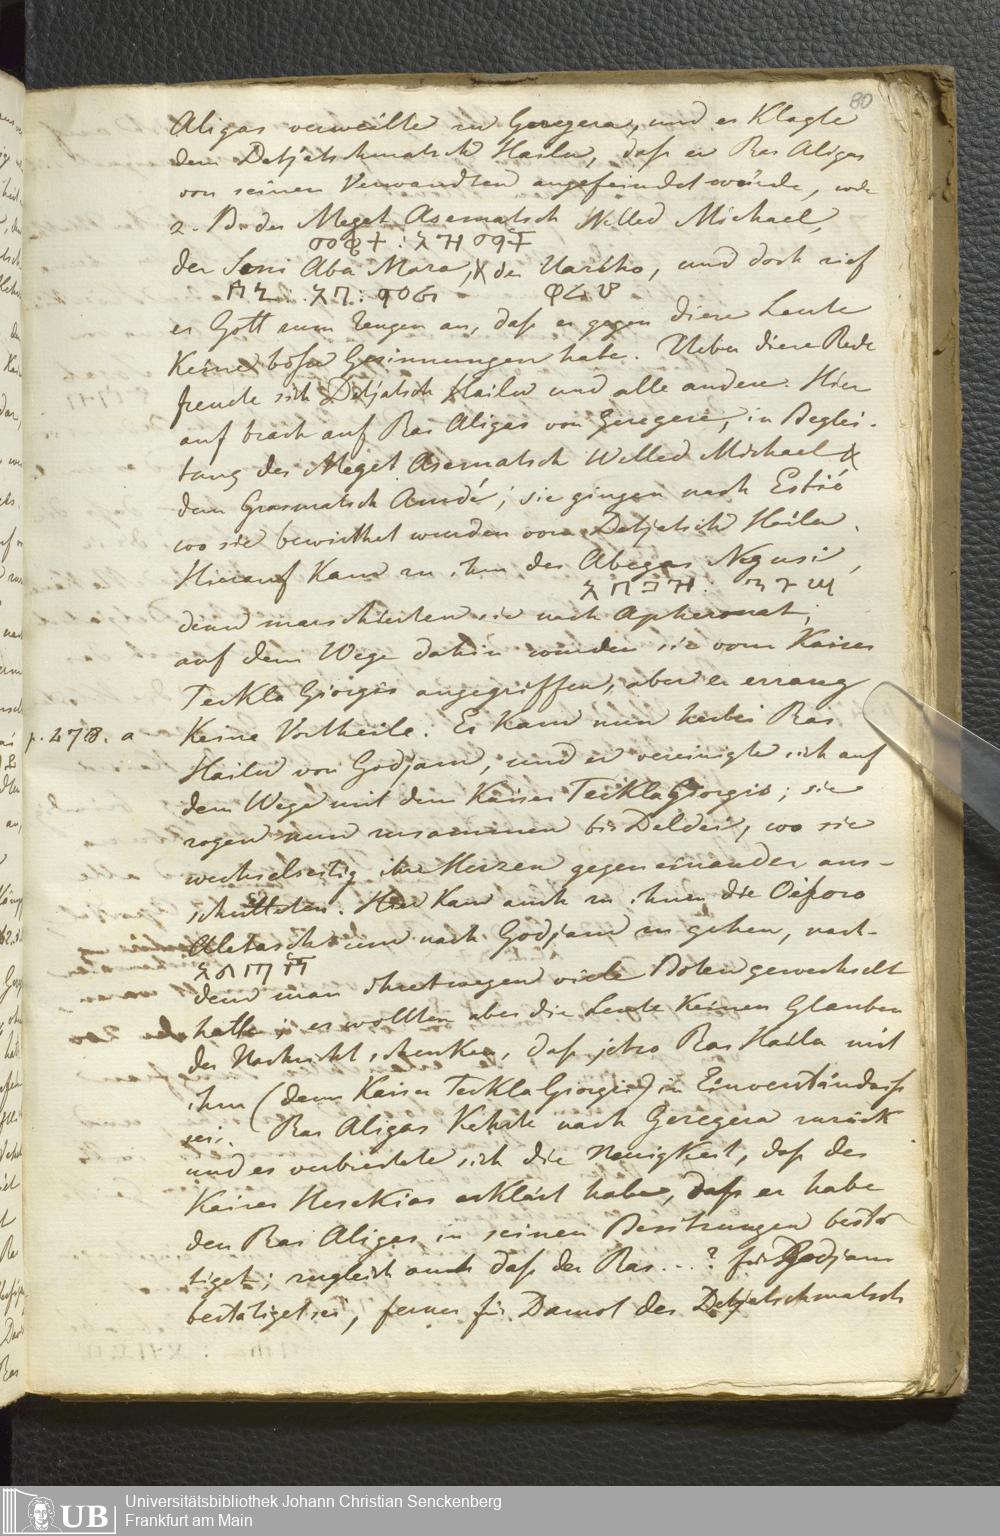 80
Aligas verweilte zu Geregera, und er klagte
dem Detjatschmatsch Hailu, daß er Ras Aligas
von seinen Verwandten angefeindet würde, wie
z. B. der Meget Asematsch Welled Michael,
der Seni Aba Mara, & der Uarího, und doch rief
er Gott zum Zeugen an, daß er gegen diese Leute
keine böse Gesinnungen habe. Ueber diese Rede
freute sich Detjatsch Hailu und alle andere. Hier
auf brach auf Ras Aligas von Geregera, in Beglei-
tung des Meget Asematsch Welled Michael &
dem Grasmatsch Amdé; sie gingen nach Estié
wo sie bewirthet wurden vom Detjatsch Hailu.
Hierauf kam zu ihm der Abegas Negusi,
አበጋዝ: ንጉሡ
denn marschierten sie nach Apheronat;
auf dem Wege dahin wurden sie vom Kaiser
Teckla Giorgis angegriffen, aber er errang
p. 278. a keine Vortheile. Es kam nun herbei Ras
Hailu von Godjam, und er vereinigte sich auf
dem Wege mit dem Kaiser Teckla Giorgis; sie
zogen nun zusammen bis Deldei, wo sie
wechselseitig ihr Herzen gegen einander aus-
schütteten. Hier kam auch zu ihnen die Oisoro
Alebasch um nach Godjam zu gehen, nach-
dem man ihretwegen viele Boten gewechselt
hatte; es wollten aber die Leute keinen Glauben
der Nachricht schenken, daß jetzo Ras Hailu mit
ihm (dem Kaiser Teckla Giorgis) in Einverständniß
sei. Ras Aligas kehrte nach Geregera zurück
und es verbreitete sich die Neuigkeit, daß der
Kaiser Heskias erklärt habe, daß er habe
den Ras Aligas in seinen Besitzungen bestä
tiget; zugleich auch daß der Ras ...? für Godjam
bestätiget sei, ferner für Damot der Detjatschmatsch
UB
Universitätsbibliothek Johann Christian Senckenberg
Frankfurt am Main